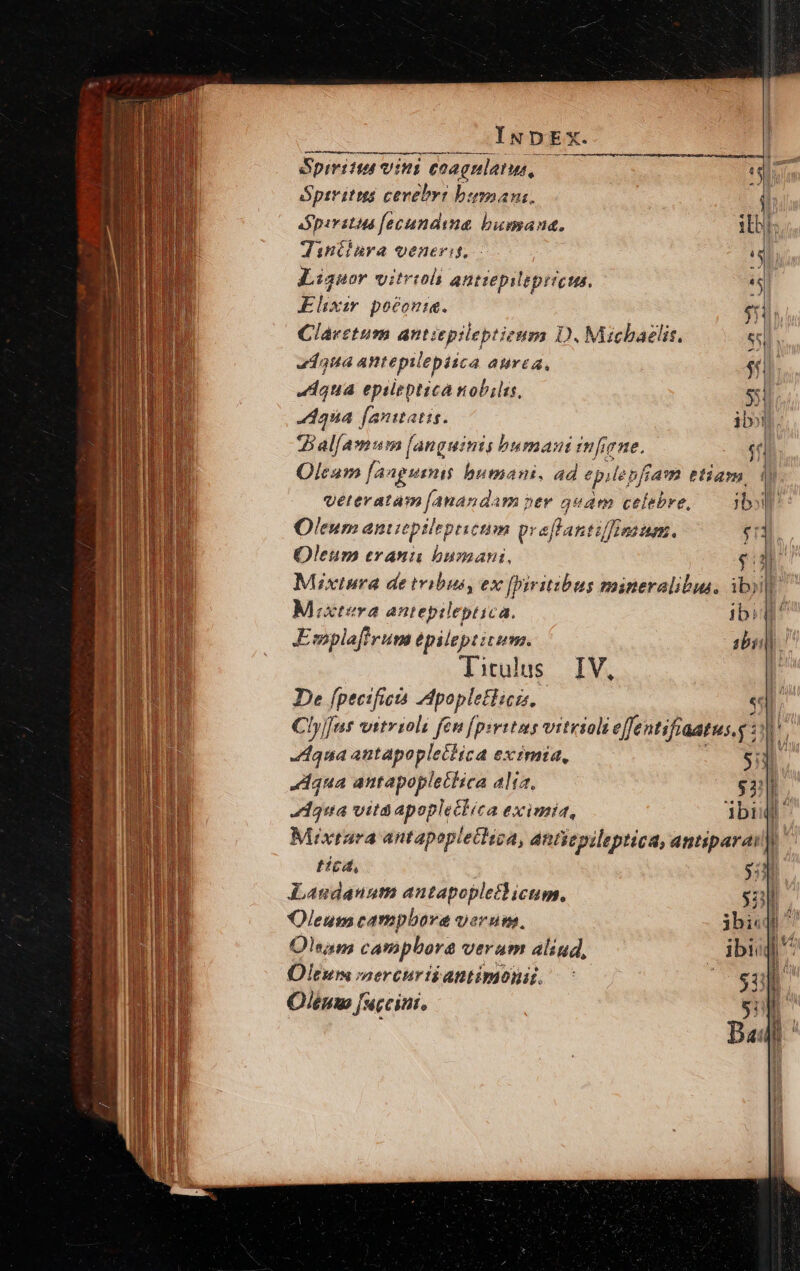 INDEX.
Spiritus vini coagulatus,
Spiritus cerebri humani.
Spiritus ſecundinæ humanæ. ibi
Tinctura veneris.
Liquor vitrioli antiepilepticus.
Elixir pœoniæ.
Claretum antiepilepticum D. Michaëlis.
Aqua antepileptica aurea,
Aqua epileptica nobilis,
Aqua ſanitatis. ibi
Balſamum ſanguinis humani inſigne.
Oleum ſanguinis humani, ad epilepſiam etiam
veteratam ſanandam per quàm celebre, ibi
Oleum antiepilepticum præſtantiſſimum.
Oleum cranii humani,
Mixtura de tribus, ex ſpiritibus mineralibus. ibi
Mixtura antepileptica. ibi
Emplaſtrum epilepticum. ibi
Titulus IV.
De ſpecificis Apoplecticis,
Clyſſus vitrioli ſeu ſpiritus vitrioli eſſentificatus.
Aqua antapoplectica eximia,
Aqua antapoplectica alia.
Aqua vitæ apoplectica eximia, ibi
Mixtura antapoplectica, antiepileptica, antiparaly
tica,
Laudanum antapoplecticum.
Oleum camphoræ verum. ibi
Oleum camphoræ verum aliud, ibi
Oleum mercurii antimonii.
Oleum ſuccini.